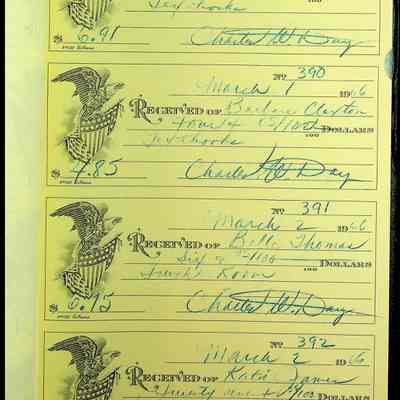 Textbooks 100
$ 6.91 Charles W. Day
No 390
March 1 1966
RECEIVED OF Barbara Clayton
Four & 85/100 DOLLARS
Textbooks 100
$ 4.85 Charles W. Day
No 391
March 2 1966
RECEIVED OF Belle Thomas
Six & /100 DOLLARS
Room 100
Charles W. Day
No 392
March 2 1966
RECEIVED OF Katie James
Twenty /100 DOLLARS